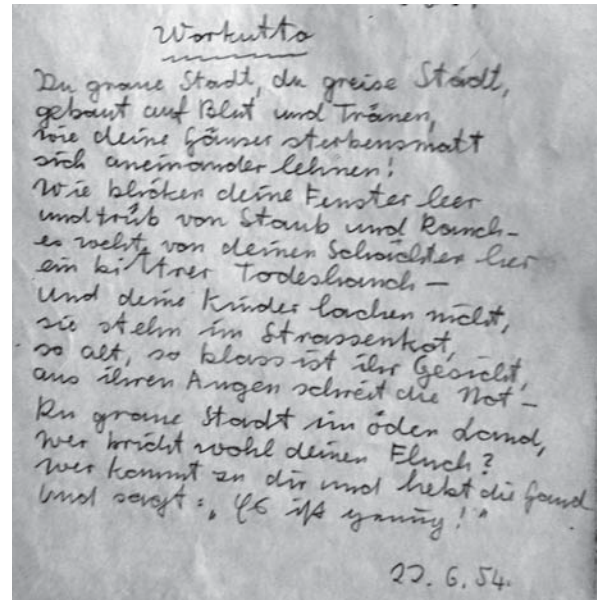 Workutta
Du graue Stadt, du greise Stadt,
gebaut auf Blut und Tränen,
wie deine Häuser sterbensmatt
sich aneinander lehnen!
Wie blicken deine Fenster leer
und trüb von Staub und Rauch –
es weht von deinen Schächten her
ein bittrer Todeshauch –
Und deine Kinder lachen nicht,
sie stehn im Strassenkot,
so alt, so blass ist ihr Gesicht,
aus ihren Augen schreit die Not –
Du graue Stadt im öden Land,
wer bricht wohl deinen Fluch?
Wer kommt zu dir und hebt die Hand
Und sagt: „Es ist genug!“
22. 6. 54.